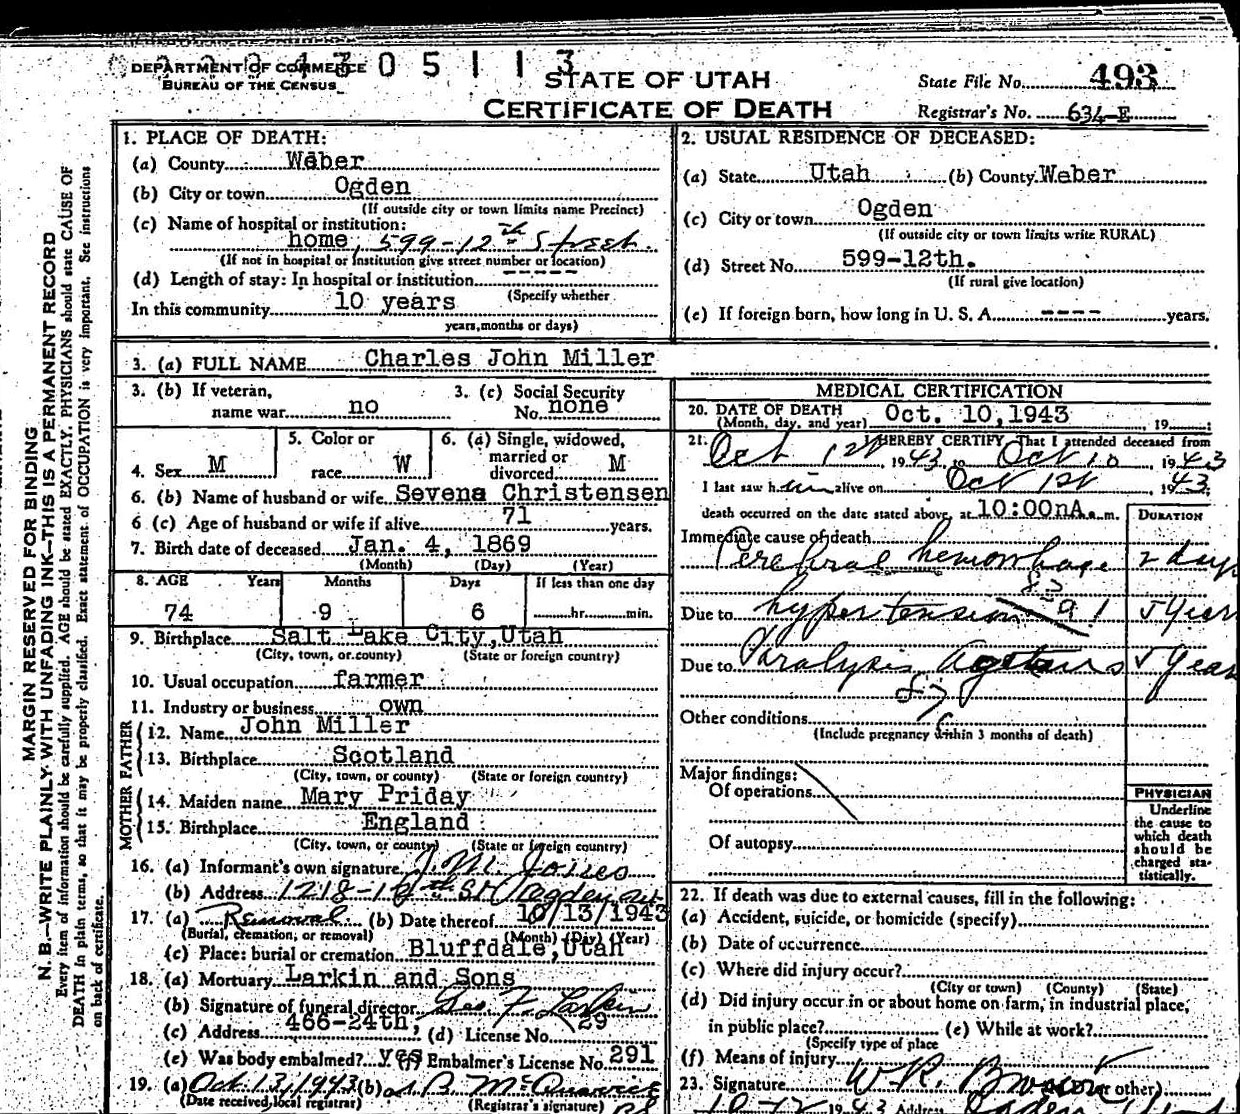 2 2 0 4 3 0 5 1 1 3
DEPARTMENT OF COMMERCE
BUREAU OF THE CENSUS
STATE OF UTAH
CERTIFICATE OF DEATH
State File No. 493
Registrar's No. 634-E
MARGIN RESERVED FOR BINDING
N. B.—WRITE PLAINLY WITH UNFADING INK—THIS IS A PERMANENT RECORD
Every item of information should be carefully supplied. AGE should be stated EXACTLY. PHYSICIANS should state CAUSE OF
DEATH in plain terms, so that it may be properly classified. Exact statement of OCCUPATION is very important. See instructions
on back of certificate.
1. PLACE OF DEATH:
(a) County Weber
(b) City or town Ogden
(If outside city or town limits name Precinct)
(c) Name of hospital or institution:
home, 599-12th Street.
(If not in hospital or institution give street number or location)
(d) Length of stay: In hospital or institution -----
(Specify whether
In this community 10 years
years, months or days)
2. USUAL RESIDENCE OF DECEASED:
(a) State Utah (b) County Weber
(c) City or town Ogden
(If outside city or town limits write RURAL)
(d) Street No. 599-12th.
(If rural give location)
(e) If foreign born, how long in U. S. A. ---- years.
3. (a) FULL NAME Charles John Miller
3. (b) If veteran, name war no
3. (c) Social Security No. none
4. Sex M
5. Color or race W
6. (a) Single, widowed, married or divorced M
6. (b) Name of husband or wife Sevena Christensen
6 (c) Age of husband or wife if alive 71 years.
7. Birth date of deceased Jan. 4, 1869
(Month) (Day) (Year)
8. AGE Years Months Days If less than one day
74 9 6 hr. min.
9. Birthplace Salt Lake City, Utah
(City, town, or county) (State or foreign country)
10. Usual occupation farmer
11. Industry or business own
FATHER
12. Name John Miller
13. Birthplace Scotland
(City, town, or county) (State or foreign country)
MOTHER
14. Maiden name Mary Priday
15. Birthplace England
(City, town, or county) (State or foreign country)
16. (a) Informant's own signature J. M. Jones
(b) Address 1218-12th St Ogden
17. (a) Removal (b) Date thereof 10/13/1943
(Burial, cremation, or removal) (Month) (Day) (Year)
(c) Place: burial or cremation Bluffdale, Utah
18. (a) Mortuary Larkin and Sons
(b) Signature of funeral director Geo F. Larkin
(c) Address 466-24th, (d) License No. 29
(e) Was body embalmed? yes Embalmer's License No. 291
19. (a) Oct. 13, 1943 (b)
(Date received, local registrar) (Registrar's signature)
MEDICAL CERTIFICATION
20. DATE OF DEATH Oct. 10, 1943
(Month, day, and year) , 19
21. I HEREBY CERTIFY That I attended deceased from
Oct 1st, 1943 to Oct 10, 1943
I last saw him alive on Oct 1st 1943;
death occurred on the date stated above, at 10:00 A. m.
DURATION
Immediate cause of death
Cerebral hemorrhage 2 days
83
Due to hypertension 5 year
Due to Paralysis Agetans 5 year
87
Other conditions
(Include pregnancy within 3 months of death)
Major findings:
Of operations
Of autopsy
PHYSICIAN
Underline
the cause to
which death
should be
charged sta-
tistically.
22. If death was due to external causes, fill in the following:
(a) Accident, suicide, or homicide (specify)
(b) Date of occurrence
(c) Where did injury occur?
(City or town) (County) (State)
(d) Did injury occur in or about home on farm, in industrial place,
in public place? (e) While at work?
(Specify type of place
(f) Means of injury
23. Signature W. R. Brown or other)
10-12 1943 Address Ogden